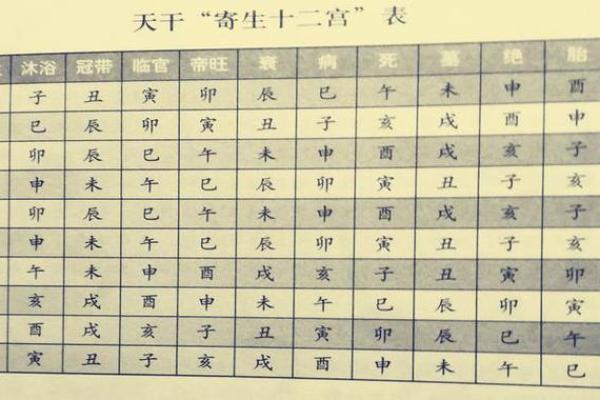 天干“寄生十二宫”表
沐浴 冠带 临官 帝旺 衰 病 死 墓 绝 胎
子 丑 寅 卯 辰 巳 午 未 申 酉
巳 辰 卯 寅 丑 子 亥 戌 酉 申
卯 辰 巳 午 未 申 酉 戌 亥 子
申 未 午 巳 辰 卯 寅 丑 子 亥
卯 辰 巳 午 未 申 酉 戌 亥 子
申 未 午 巳 辰 卯 寅 丑 子 亥
午 未 申 酉 戌 亥 子 丑 寅 卯
亥 戌 酉 申 未 午 巳 辰 卯 寅
酉 戌 亥 子 丑 寅 卯 辰 巳 午
寅 丑 子 亥 戌 酉 申 未 午 巳